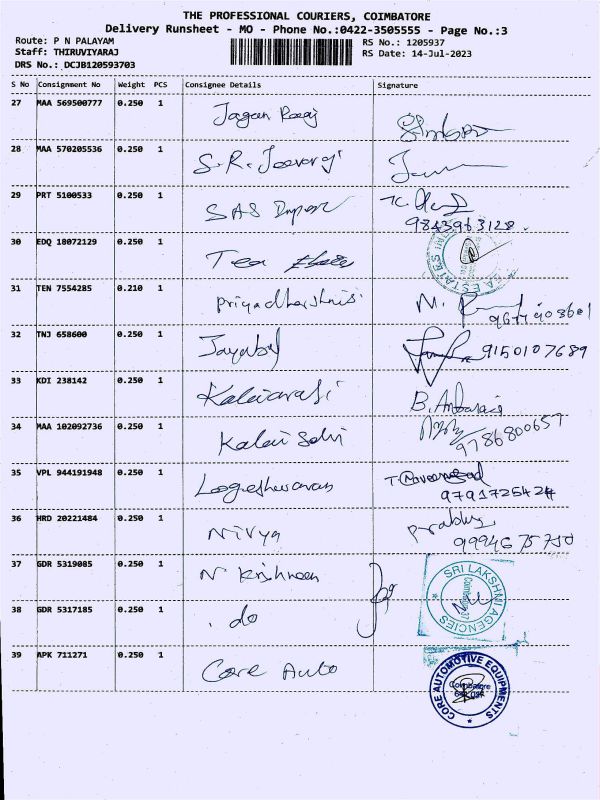 THE PROFESSIONAL COURIERS, COIMBATORE
Delivery Runsheet - MO - Phone No.:0422-3505555 - Page No.:3
Route: P N PALAYAM
Staff: THIRUVIYARAJ
DRS No.: DCJB120593703
RS No.: 1205937
RS Date: 14-Jul-2023
S No Consignment No Weight PCS Consignee Details Signature
27 MAA 569500777 0.250 1 Jagan Raaj
28 MAA 570205536 0.250 1 S.R. Jeevaraj
29 PRT 5100533 0.250 1 SAS
9843963128.
30 EDQ 18072129 0.250 1 Tea Estate
31 TEN 7554285 0.210 1 Priyadharshni
M.
32 TNJ 658600 0.250 1 Jayabal 9150107689
33 KDI 238142 0.250 1 Kalaiarasi B.
34 MAA 102092736 0.250 1 Kalai Selvi 9786800657
35 VPL 944191948 0.250 1 Logeshwaran
9791725424
36 HRD 20221484 0.250 1 Nivya Prabhu
9994675750
37 GDR 5319085 0.250 1 N Krishnan
SRI LAKSHMI AGENCIES
38 GDR 5317185 0.250 1 . do
39 APK 711271 0.250 1 Core Auto
CORE AUTOMOTIVE EQUIPMENTS
Coimbatore